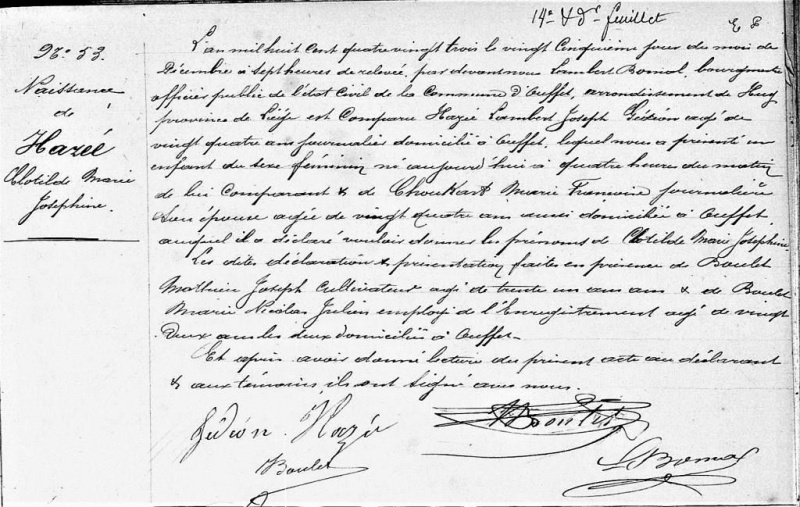 14e & Dr feuillet
No 53.
Naissance
de
Hazéé
Clotilde Marie
Joséphine.
L'an mil huit cent quatre vingt trois le vingt cinquième jour du mois de
Décembre à sept heures de relevée, par devant nous Lambert Bomal, bourgmestre
officier public de l'état Civil de la Commune d'Ouffet, arrondissement de Huy
province de Liége est Comparu Hazéé Lambert Joseph Gédéon agé de
vingt quatre ans journalier domicilié à Ouffet, lequel nous a présenté un
enfant du sexe féminin né aujourd'hui à quatre heures du matin
de lui Comparant & de Marie Françoise journalière
son épouse agée de vingt quatre ans aussi domiciliée à Ouffet
auquel il a déclaré vouloir donner les prénoms de Clotilde Marie Joséphine
Les dites déclaration & présentation faites en présence de Boulet
Mathieu Joseph Cultivateur agé de trente un ans & de Boulet
Marie Nicolas Julien employé de l'Enregistrement agé de vingt
Deux ans les deux domiciliés à Ouffet.
Et après avoir donné lecture du présent acte au déclarant
& aux témoins ils ont signé avec nous.
Gédéon Hazéé
Boulet
L Bomal